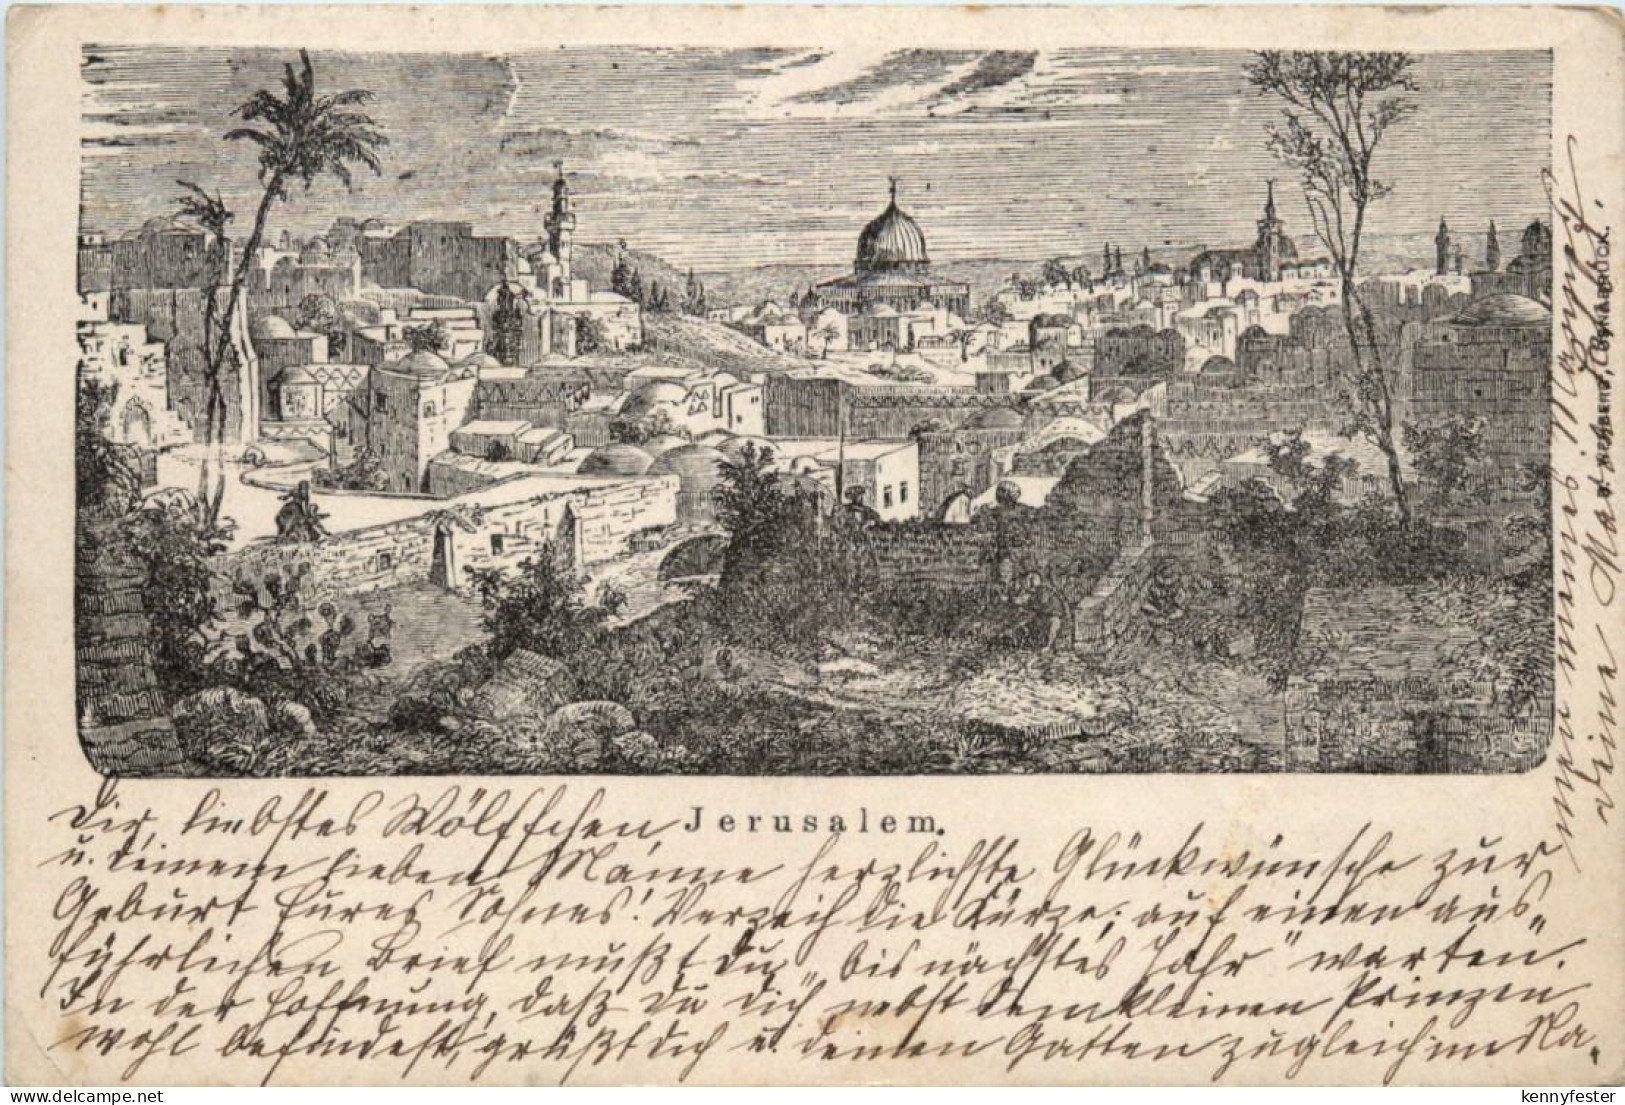 Jerusalem.
Dir, liebstes Wölffchen
u. deinem lieben Männe herzlichste Glückwünsche zur
Geburt Eures Sohnes! Verzeih die Kürze; auf einen aus-
führlichen Brief mußt du „bis nächstes Jahr" warten.
In der Hoffnung, daß du dich nebst dem kleinen Prinzen
wohl befindest, grüßt dich u. deinen Gatten zugleich im Na-
men meines
deine
delcampe.net
kennyfester